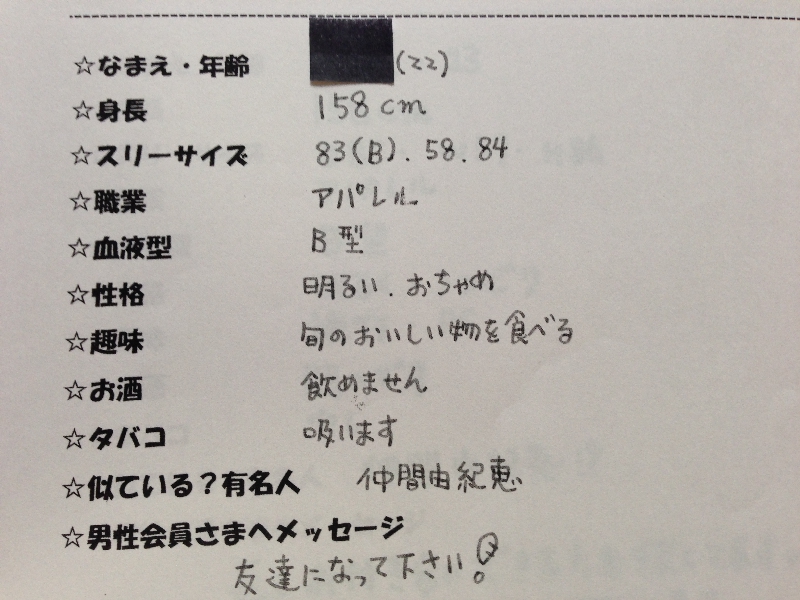 ☆なまえ・年齢 (22)
☆身長 158cm
☆スリーサイズ 83(B).58.84
☆職業 アパレル
☆血液型 B型
☆性格 明るい.おちゃめ
☆趣味 旬のおいしい物を食べる
☆お酒 飲めません
☆タバコ 吸います
☆似ている?有名人 仲間由紀恵
☆男性会員さまへメッセージ
友達になって下さい!